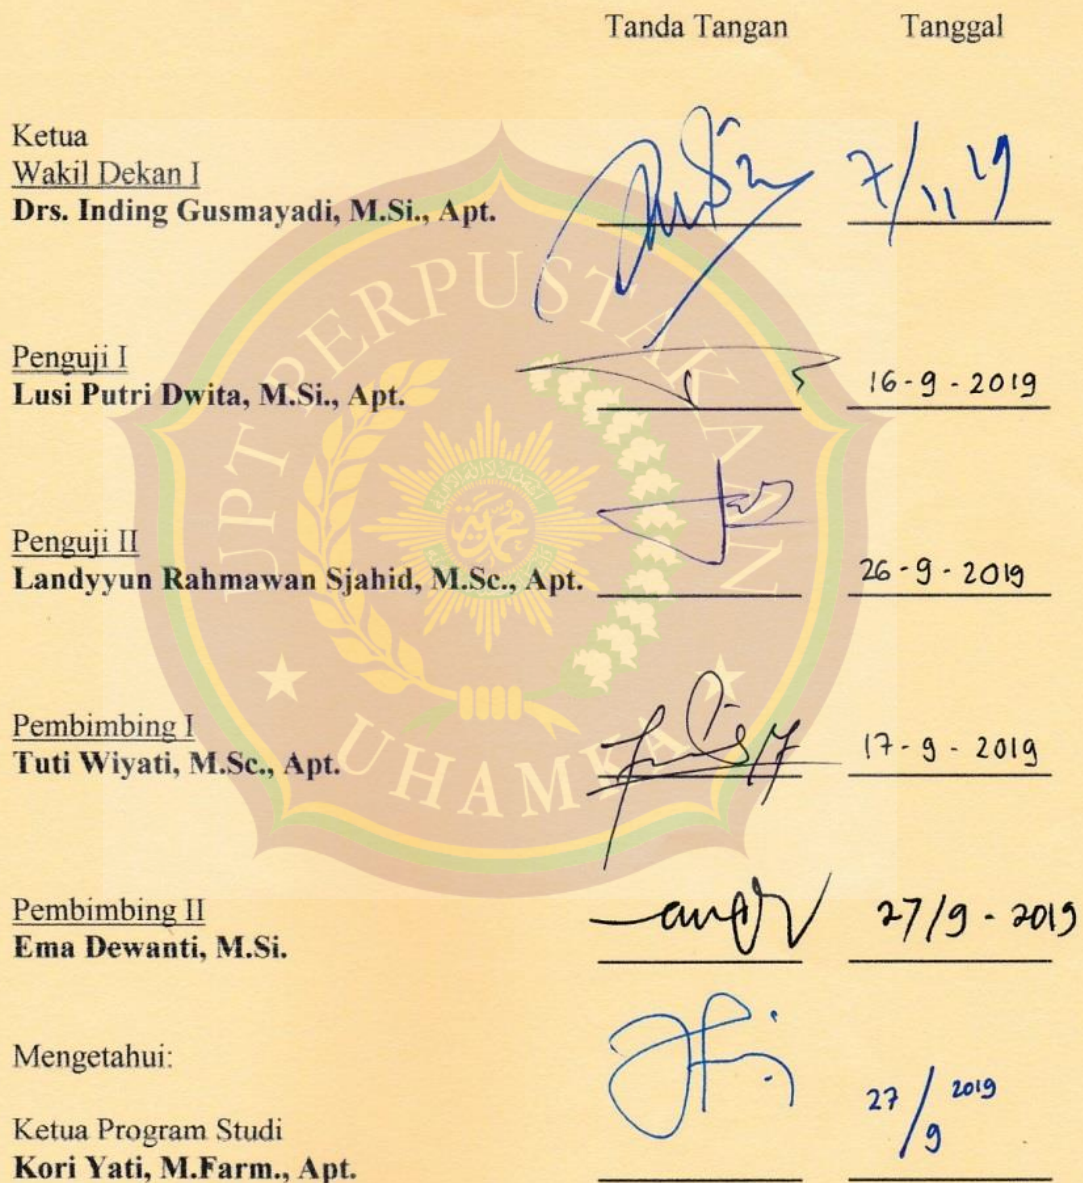 Tanda Tangan Tanggal
Ketua
Wakil Dekan I
Drs. Inding Gusmayadi, M.Si., Apt. 7/11 19
Penguji I
Lusi Putri Dwita, M.Si., Apt. 16-9-2019
Penguji II
Landyyun Rahmawan Sjahid, M.Sc., Apt. 26-9-2019
Pembimbing I
Tuti Wiyati, M.Sc., Apt. 17-9-2019
Pembimbing II
Ema Dewanti, M.Si. 27/9-2019
Mengetahui:
Ketua Program Studi
Kori Yati, M.Farm., Apt. 27/9 2019
UPT PERPUSTAKAAN
UHAMKA